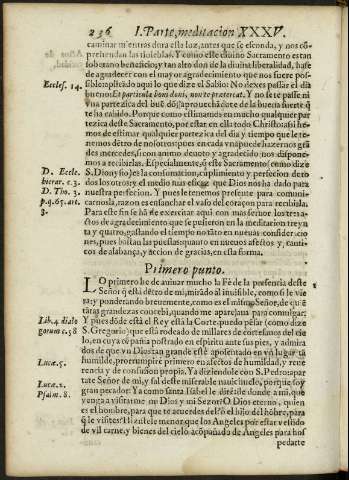 236 I. Parte, meditacion XXXV.
caminar mientras dura esta luz, antes que se esconda, y nos cõ-
prehendan las tinieblas. Y como este diuino Sacramento es tan
soberano beneficio; y tan alto don de la diuina liberalidad, hase
de agradecer con el mayor agradecimiento que nos fuere pos-
Eccles. 14. sible; aplicado aqui lo que dize el Sabio: No dexes passar el dia
bueno: Et particula boni doni, non te prætereat. Y no se te passe ni
vna partezica del buẽ dõ; aprouechãdote de la buena suerte q̃
te ha cabido. Porque como estimando en mucho qualquier par
tezica deste Sacramento, por estar en ella todo Christo: assi he-
mos de estimar qualquier partezica del dia y tiempo que le te-
nemos dẽtro de nosotros: pues en vn momẽto puede hazer grã
des mercedes, si con animo deuoto y agradecido nos dispone-
mos a recibirlas. Especialmente, q̃ este Sacramento (como dize
D. Eccle. S. Dionysio) es la consumacion, cũplimiento y perfeccion de to
hierar. c. 3. dos los otros: y el medio mas eficaz que Dios nos ha dado para
D. Tho. 3. nuestra perfecion. Y pues le tenemos presente para comuni-
p. q. 65. art. carnosla, razon es ensanchar el vaso del coraçon para recibirla.
3. Para este fin se hã de exercitar aqui con mas feruor los tres a-
ctos de agradecimiento que se pusieron en la meditacion treyn
ta y quatro, gastando el tiempo no tãto en nueuas consider cio
nes, pues bastan las puestas, quanto en nueuos afectos y, canti-
cos de alabança, y accion de gracias, en esta forma.
Primero punto.
LO primero he de auiuar mucho la Fè de la presencia deste
Señor q̃ està dẽtro de mi, mirãdo al inuisible, como si le vie
ra; y ponderando breuemente, como es el mismo Señor, de quiẽ
tãtas grandezas concebi, quando me aparejaua para comulgar:
Lib. 4. dialo Y pues dõde està el Rey està la Corte, puedo pẽsar (como dize
gorum c. 58 S. Gregorio) que està rodeado de millares de cortesanos del cie
lo, en cuya cõpañia postrado en espiritu ante sus pies, y admira
dos de que vn Dios tan grande estè aposentado en vn lugar tã
humilde, prorrumpirè primero en afectos de humildad, y reue
Lucæ. 5. rencia y de confusion propia. Ya diziendole con S. Pedro: apar
tate Señor de mi, y sal deste miserable nauichuelo, porque soy
gran pecador: Ya como santa Isabel le dirè: de donde a mi, que
Lucæ. 1. venga a visitarme mi Dios y mi Señor? O Dios eterno, quien
Psalm. 8. es el hombre, para que te acuerdes del? ò el hijo del hõbre, para
q̃ le visites? Hizistele menor que los Angeles por estar vestido
de vil carne, y bienes del cielo acõpañado de Angeles para hos
pedarte